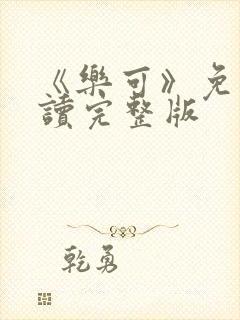 《樂可》免
讀完整版
乾勇